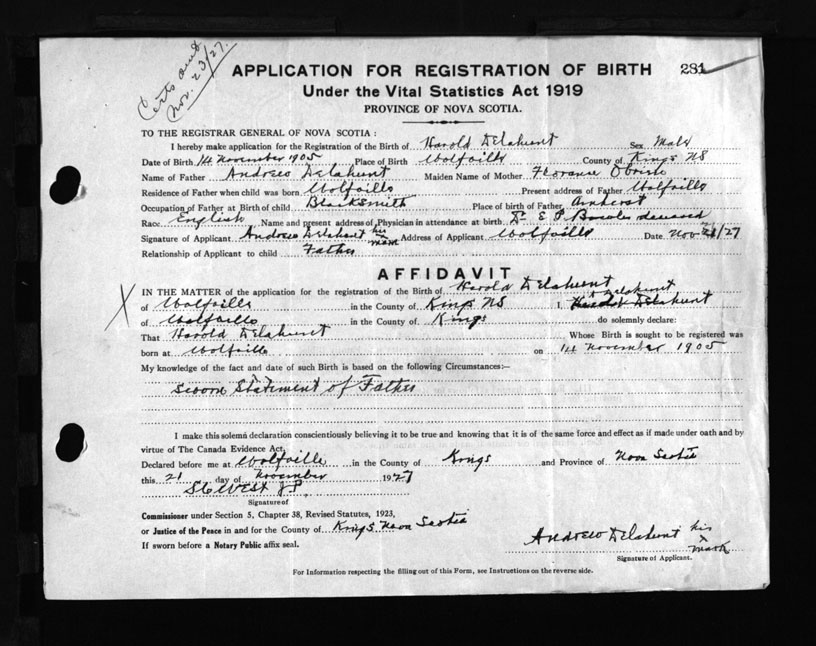 Certs sent
Nov. 23/27.
APPLICATION FOR REGISTRATION OF BIRTH 281
Under the Vital Statistics Act 1919
PROVINCE OF NOVA SCOTIA.
TO THE REGISTRAR GENERAL OF NOVA SCOTIA :
I hereby make application for the Registration of the Birth of Harold Delahunt Sex Male
Date of Birth 14 November 1905 Place of Birth Wolfville County of Kings NS
Name of Father Andrew Delahunt Maiden Name of Mother Florence
Residence of Father when child was born Wolfville Present address of Father Wolfville
Occupation of Father at Birth of child Blacksmith Place of birth of Father Amherst
Race English Name and present address of Physician in attendance at birth Dr E P Bowles deceased
Signature of Applicant Andrew Delahunt his x mark Address of Applicant Wolfville Date Nov /27
Relationship of Applicant to child Father
AFFIDAVIT
IN THE MATTER of the application for the registration of the Birth of Harold Delahunt
of Wolfville in the County of Kings NS I. Delahunt
of Wolfville in the County of Kings do solemnly declare:
That Harold Delahunt Whose Birth is sought to be registered was
born at Wolfville on 14 November 1905
My knowledge of the fact and date of such Birth is based on the following Circumstances:—
Sworn Statement of Father
I make this solemn declaration conscientiously believing it to be true and knowing that it is of the same force and effect as if made under oath and by
virtue of The Canada Evidence Act.
Declared before me at Wolfville in the County of Kings and Province of Nova Scotia
this 21 day of November 1927
West J.P.
Signature of
Commissioner under Section 5, Chapter 38, Revised Statutes, 1923,
or Justice of the Peace in and for the County of Kings Nova Scotia
If sworn before a Notary Public affix seal.
Andrew Delahunt his x mark
Signature of Applicant.
For Information respecting the filling out of this Form, see Instructions on the reverse side.